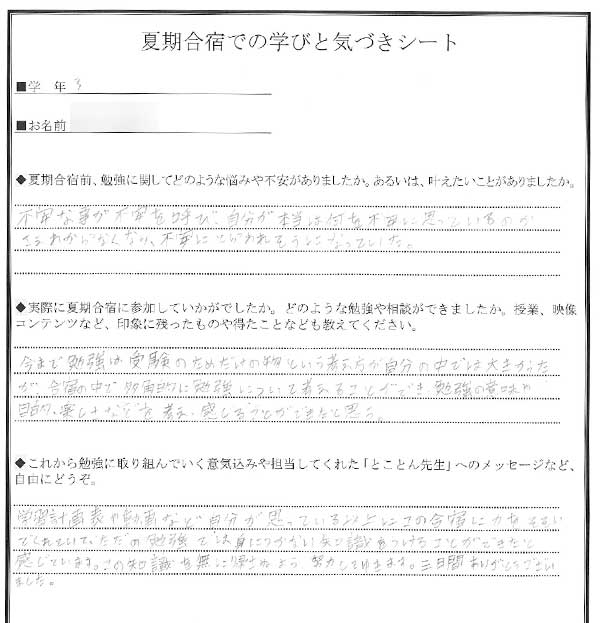 夏期合宿での学びと気づきシート
■学 年 3
■お名前
◆夏期合宿前、勉強に関してどのような悩みや不安がありましたか。あるいは、叶えたいことがありましたか。
不安な事が不安を呼び、自分が本当は何を不安に思っているのか
さえわからなくなり、不安にとらわれそうになっていた。
◆実際に夏期合宿に参加していかがでしたか。どのような勉強や相談ができましたか。授業、映像
コンテンツなど、印象に残ったものや得たことなども教えてください。
今まで勉強は受験のためだけの物という考え方が自分の中では大きかった
が、合宿の中で多角的に勉強について考えることができ勉強の意味や
目的、楽しさなどを考え、感じることができたと思う。
◆これから勉強に取り組んでいく意気込みや担当してくれた「とことん先生」へのメッセージなど、
自由にどうぞ。
学習計画表や動画など自分が思っている以上にこの合宿に力をそそい
でくれていて、ただの勉強では身につかない知識をつけることができたと
感じています。この知識を無に帰さぬよう努力してゆきます。三日間ありがとうござい
ました。